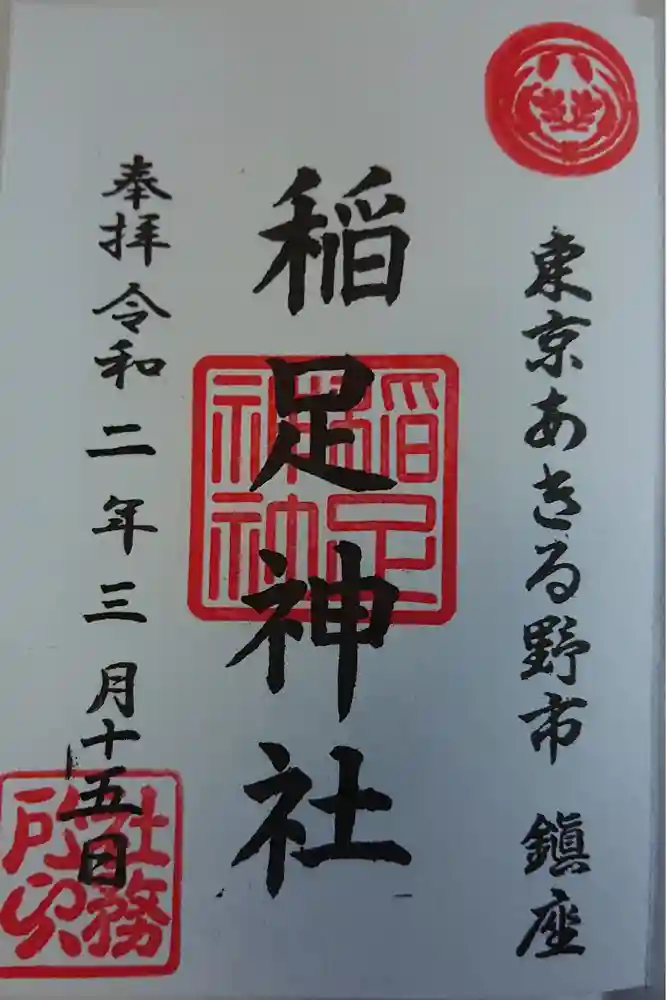 東京あきる野市 鎮座
稲足神社
稲足神社
奉拝 令和二年三月十五日
社務所印